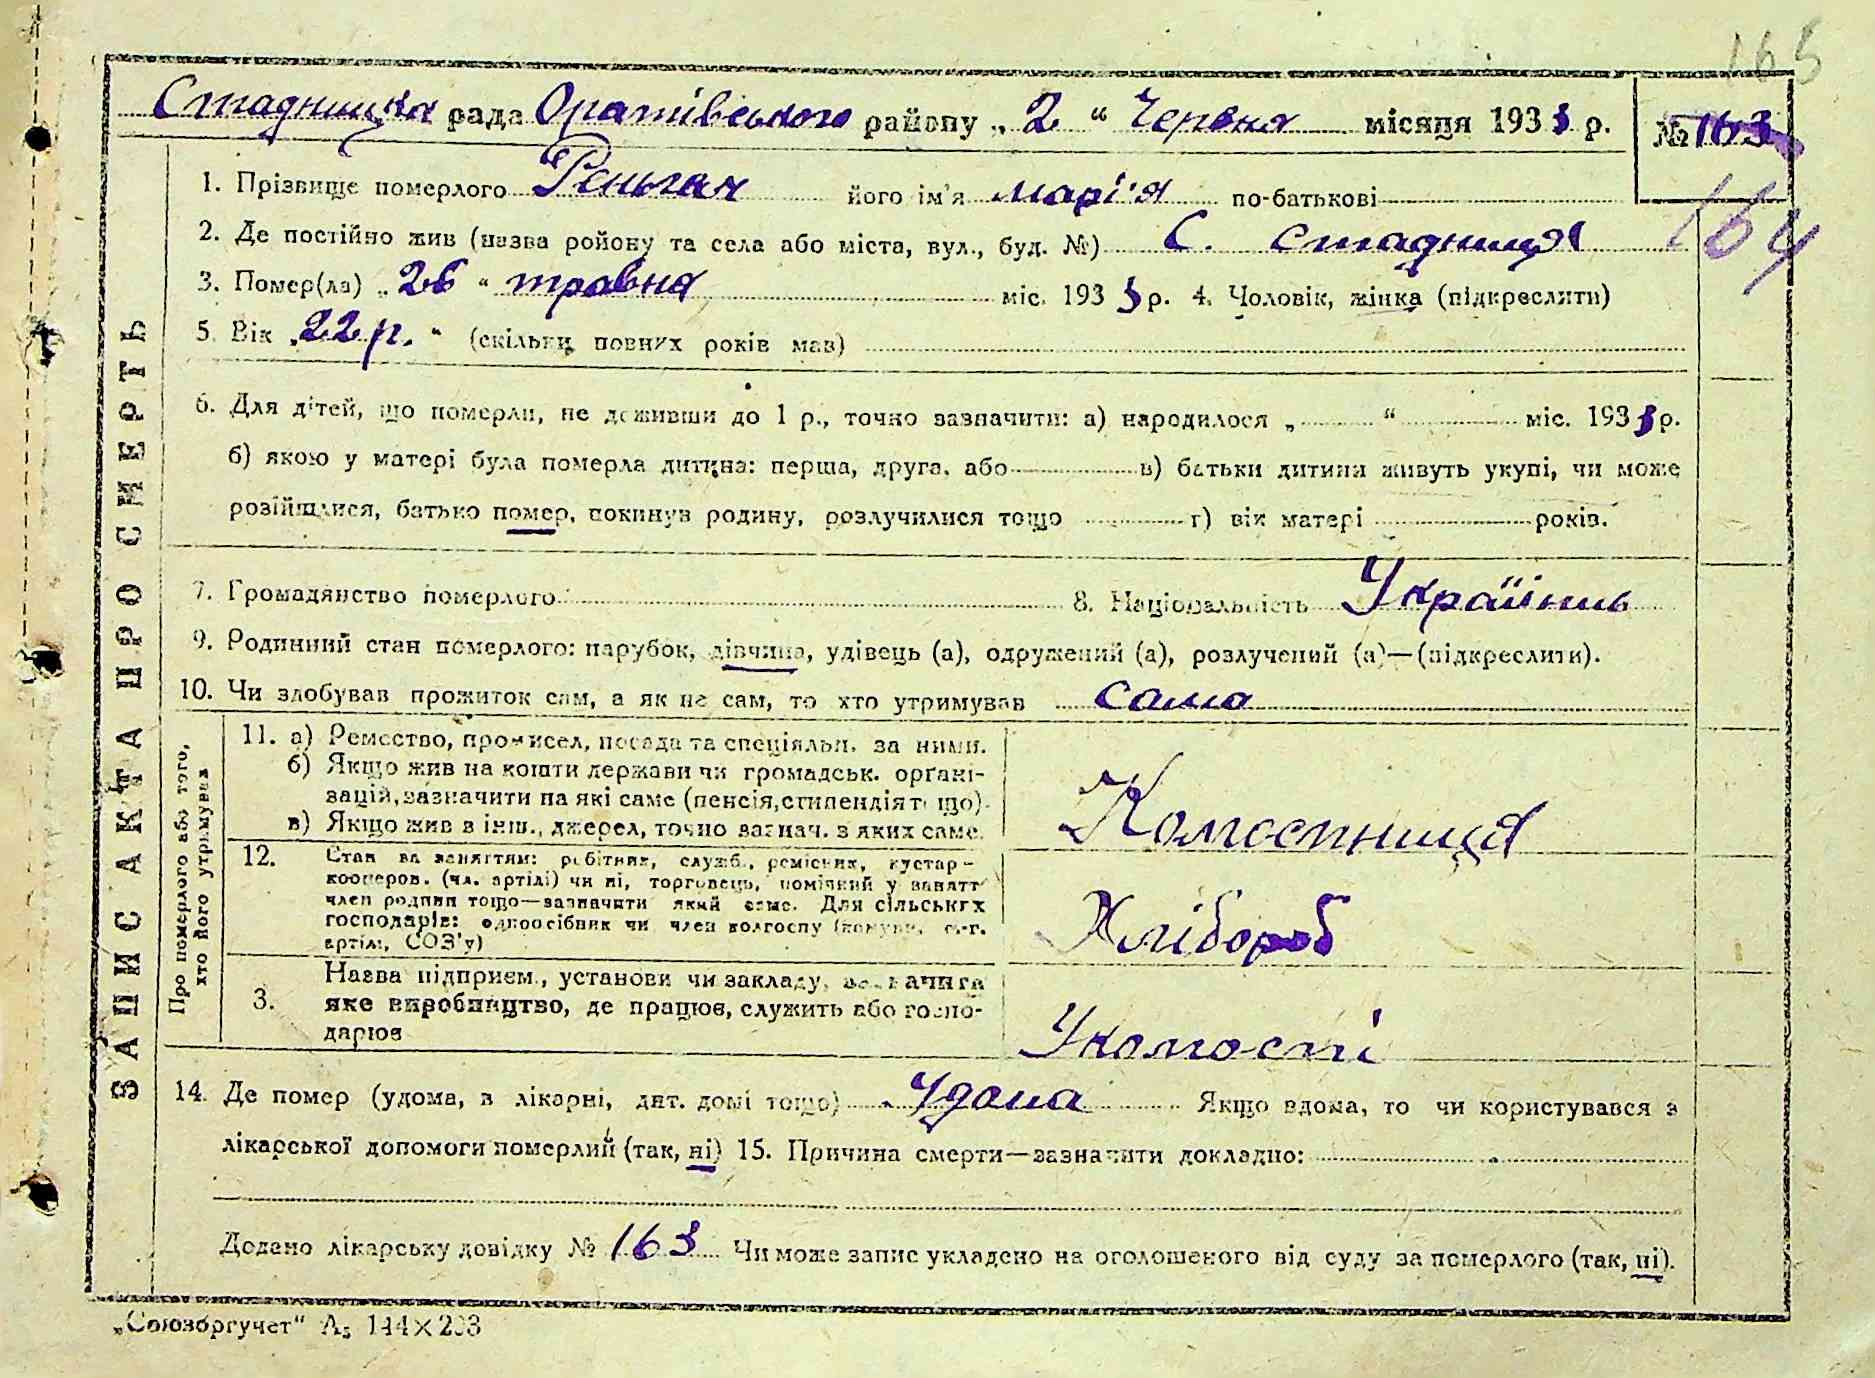 165
Стадницка рада Оратівського району „2“ Червня місяця 1933 р. № 163
164
1. Прізвище померлого його ім'я Марі'я по-батькові
2. Де постійно жив (назва ройону та села або міста, вул., буд. №) С. Стадниця
3. Помер(ла) „26“ травня міс. 1933 р. 4. Чоловік, жінка (підкреслити)
5. Вік „22 р.“ (скільки повних років мав)
6. Для дітей, що померли, не доживши до 1 р., точно зазначити: а) народилося „ “ міс. 1933 р.
б) якою у матері була померла дитина: перша, друга, або в) батьки дитини живуть укупі, чи може
розійшлися, батько помер, покинув родину, розлучилися тощо г) вік матері років.
7. Громадянство померлого 8. Національність Украіїнць
9. Родинний стан померлого: парубок, дівчина, удівець (а), одружений (а), розлучений (а)—(підкреслити).
10. Чи здобував прожиток сам, а як не сам, то хто утримував сама
ЗАПИС АКТА ПРО СМЕРТЬ
Про померлого або того, хто його утримував
11. а) Ремество, промисел, посада та спеціяльн. за ними.
б) Якщо жив на кошти держави чи громадськ. органі-
зацій, зазначити на які саме (пенсія, стипендія тощо).
в) Якщо жив в інш., джерел, точно зазнач. з яких саме.
Комостниця
12. Стан за заняттям: робітник, служб., ремісник, кустар-
кооперов. (чл. артілі) чи ні, торговець, помічний у занятт
член родини тощо—зазначити який саме. Для сільських
господарів: одноосібник чи член колгоспу (комуни, с.-г.
артілі, СОЗ'у)
Хлібороб
3. Назва підприєм., установи чи закладу,
яке виробництво, де працює, служить або госпо-
дарює
Укомості
14. Де помер (удома, в лікарні, дит. домі тощо) Удома Якщо вдома, то чи користувався з
лікарської допомоги померлий (так, ні) 15. Причина смерти—зазначити докладно:
Додано лікарську довідку № 163 Чи може запис укладено на оголошеного від суду за померлого (так, ні).
„Союзоргучет“ А5 144×203